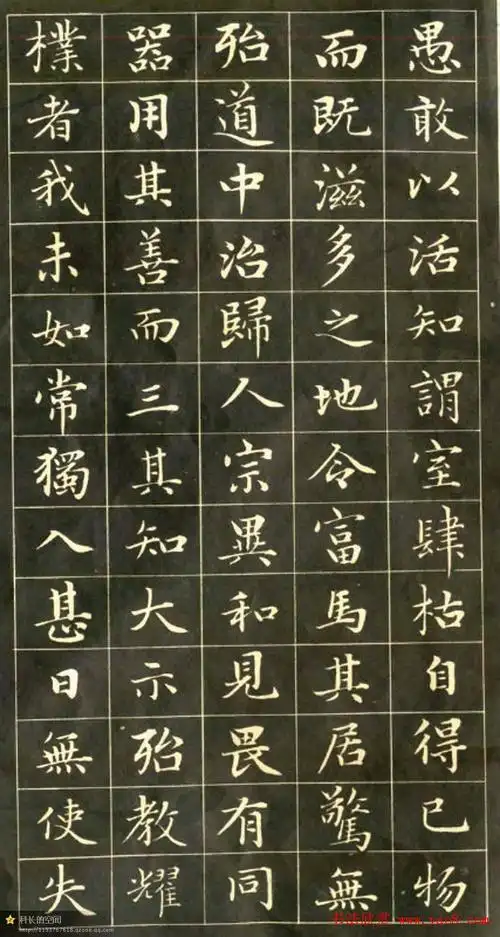 愚敢以活知謂室肆枯自得已物
而既滋多之地令富馬其居驚無
殆道中治歸人宗異和見畏有同
器用其善而三其知大示殆教耀
樸者我未如常獨入甚日無使失
科长的空间
http://1131767616.qzone.qq.com